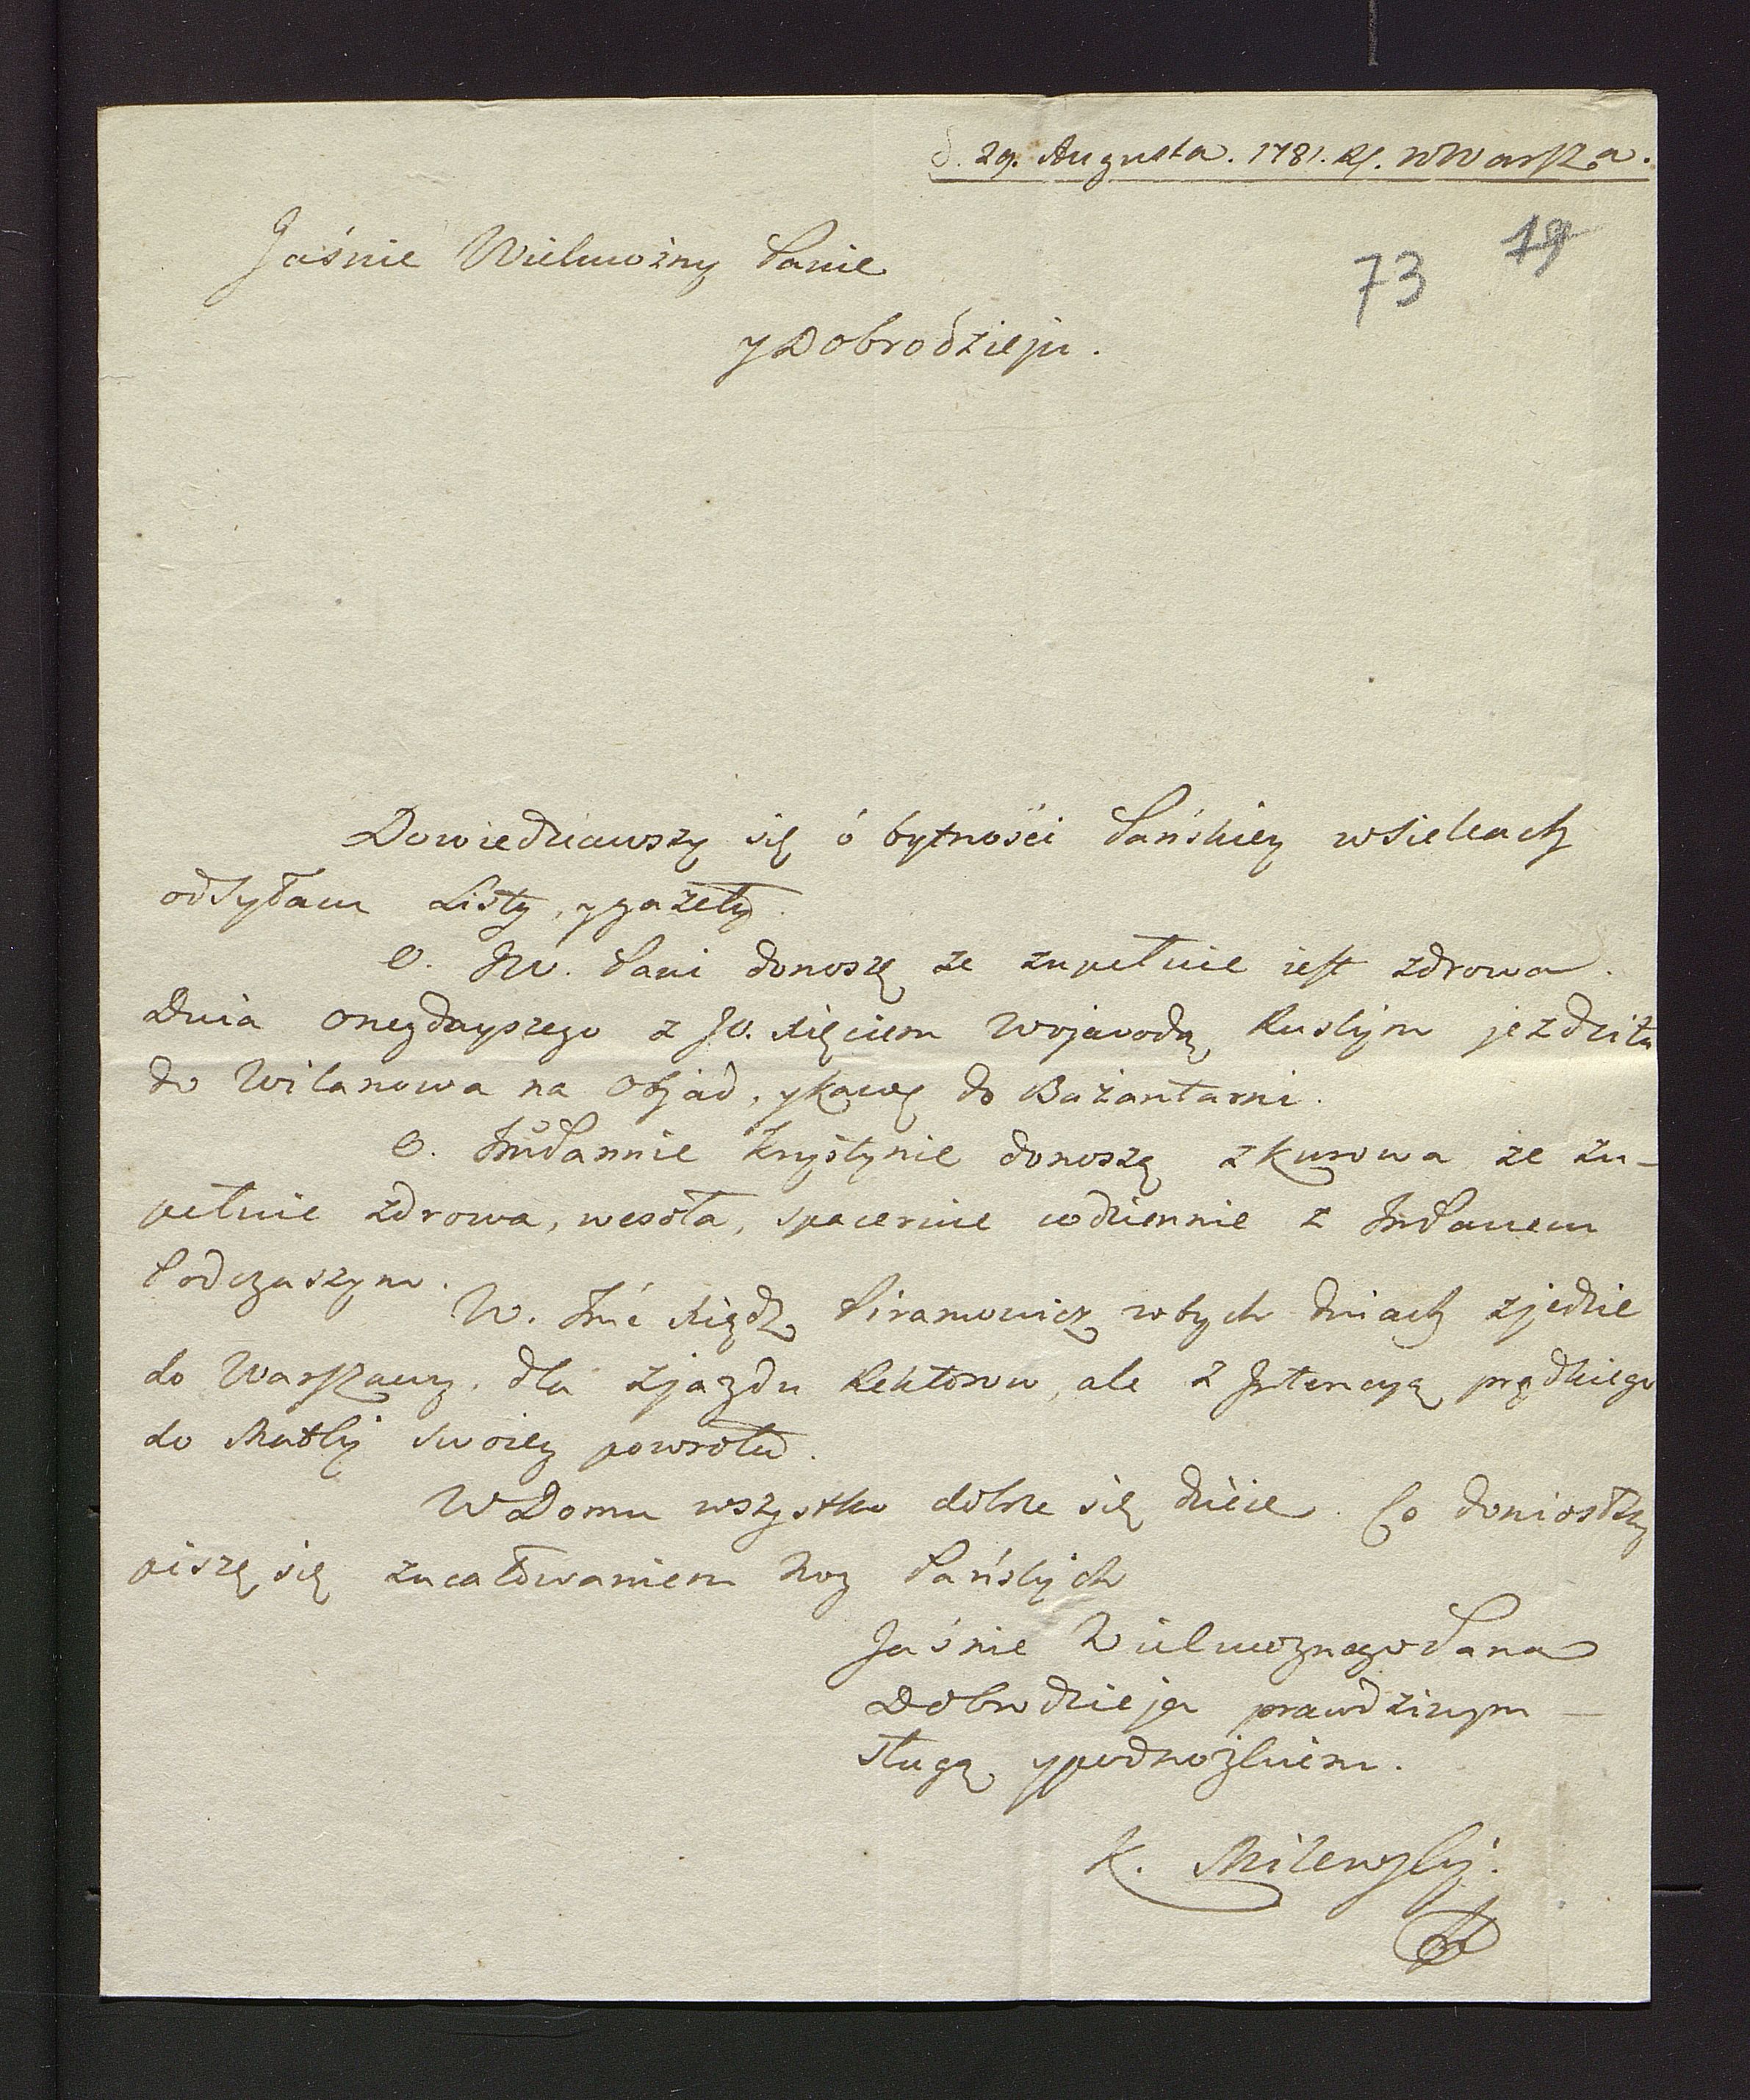 d. 29. Augusta. 1781. R. w Warsza.
73 19
Jaśnie Wielmożny Panie
y Dobrodzieju.
Dowiedziawszy się ó bytności Pańskiey w Sielcach
odsyłam Listy, y gazety.
O. JW. Pani donoszę ze zupełnie iest zdrowa.
Dnia onegdayszego z JO. Xięciem Wojewodą Ruskim jezdziła
do Wilanowa na Objad, y kawę do Bażantarni.
O. Jmć Pannie Krystynie donoszą z Kurowa że zu-
pełnie zdrowa, wesoła, spaceruie codziennie z Jmć Panem
Podczaszym.
W. Jmć Xiądz Piramowicz w tych dniach zjedzie
do Warszawy, dla zjazdu Rektorow, ale z Jntencyą prędkiego
do Matki swoiey powrotu.
W Domu wszystko dobrze się dzieie. Co doniosłszy
piszę się z ucałowaniem Nog Pańskich
Jaśnie Wielmoznego Pana
Dobrodzieja prawdziwym
sługą y podnożkiem.
K. Milewski.